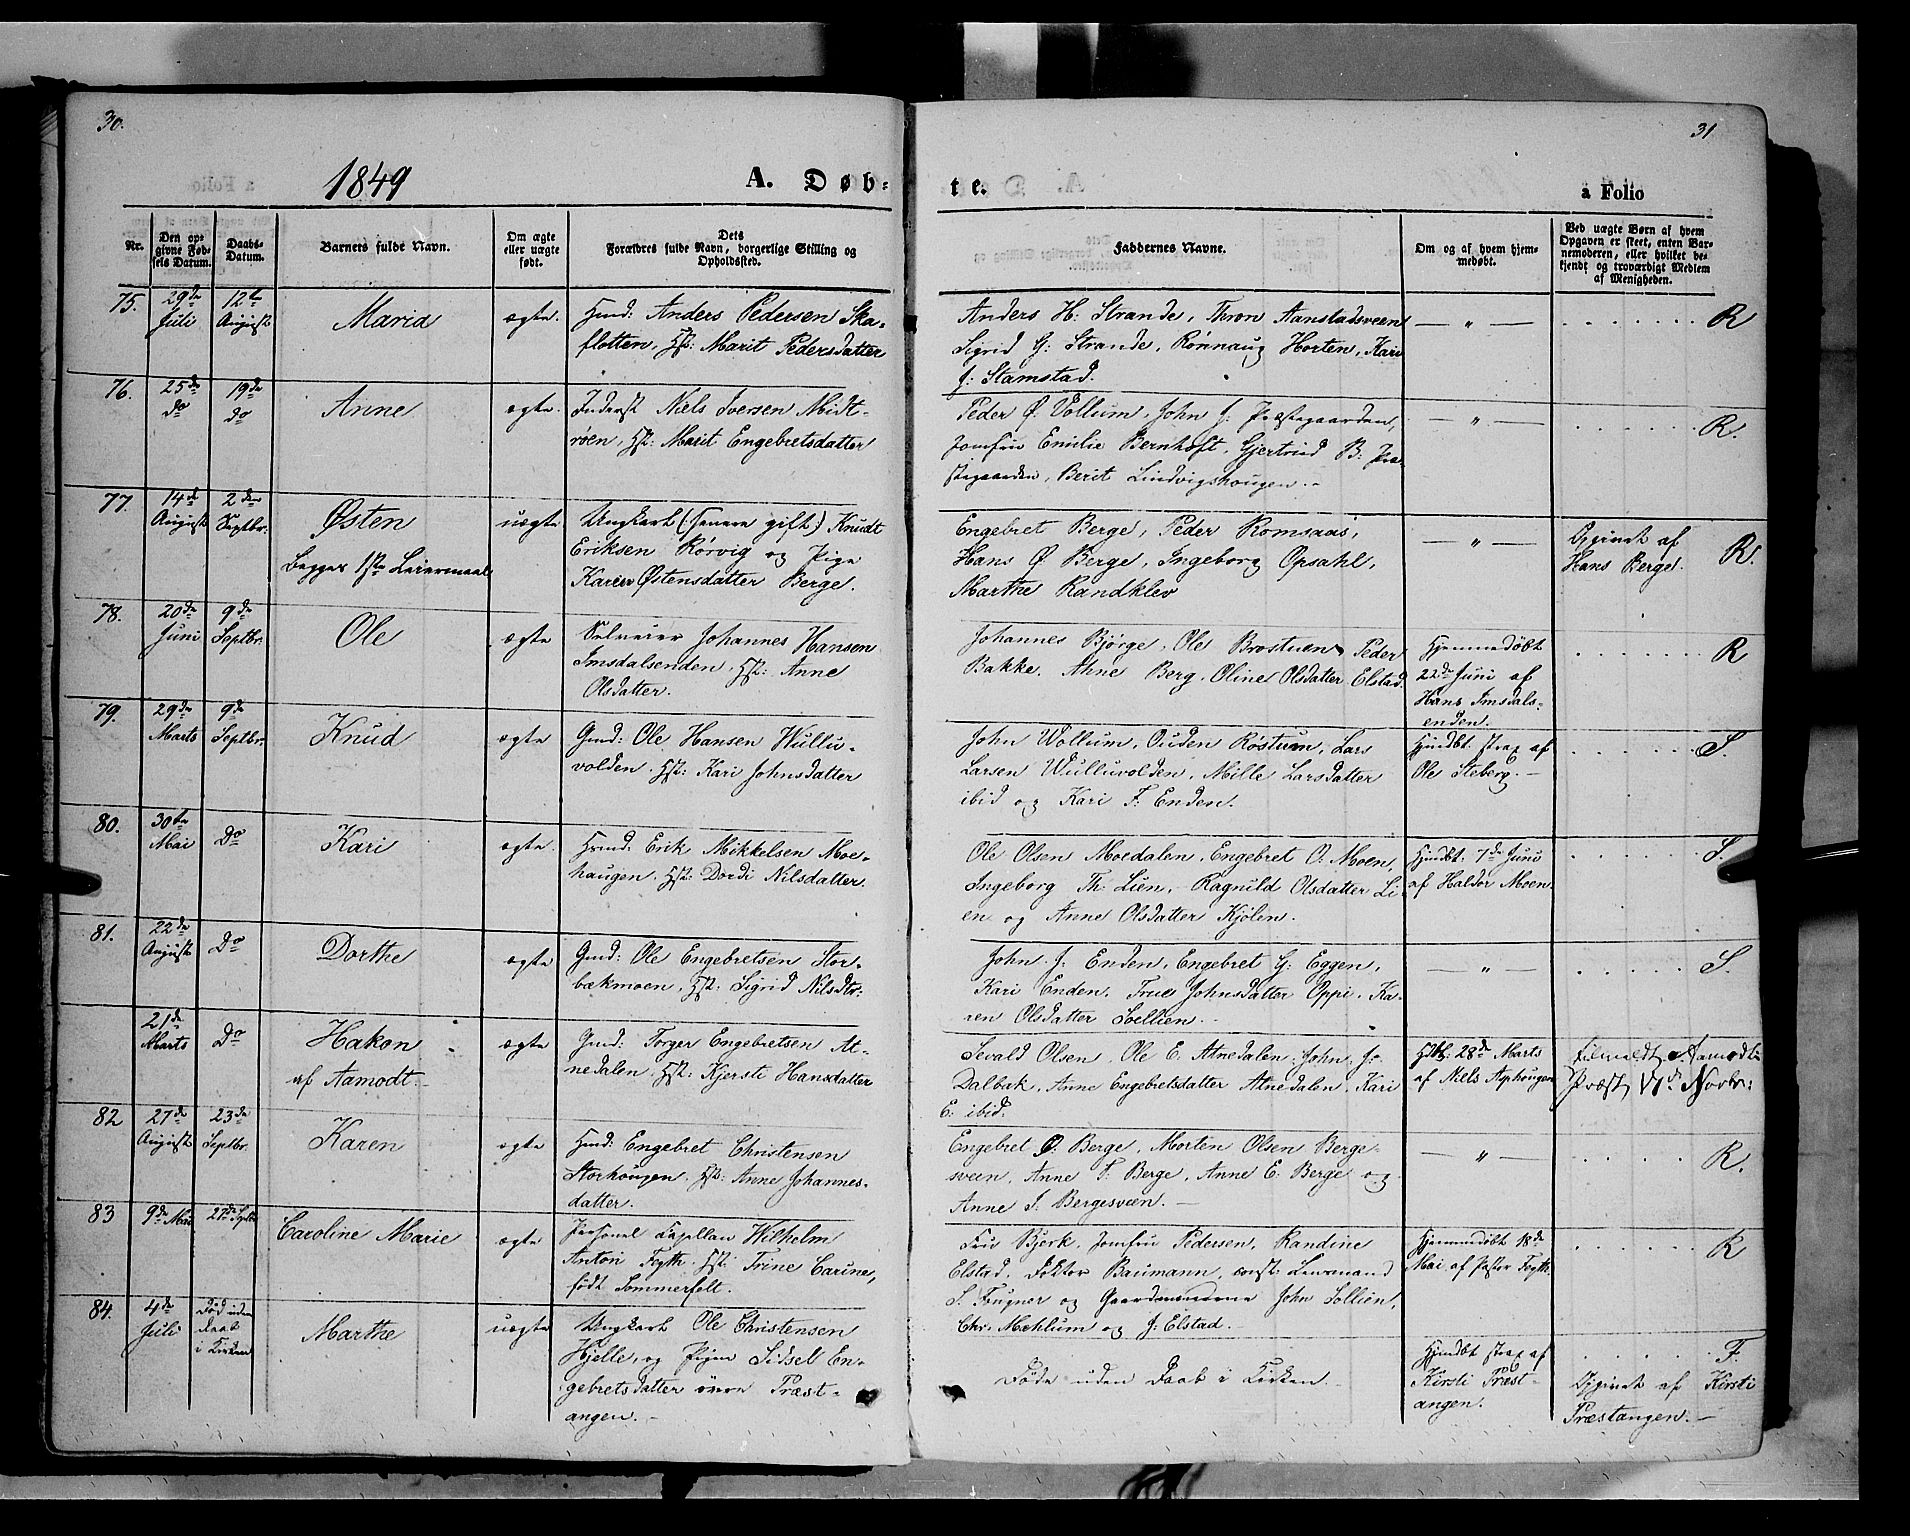 30.
1849
A. Døb-
Nr.
Den op-
givne Fød-
sels Datum.
Daabs-
Datum.
Barnets fulde Navn.
Om ægte
eller uægte
født.
Dets
Forældres fulde Navn, borgerlige Stilling og
Opholdssted.
75.
29de
Juli
12te
August
Maria
ægte.
Hmd: Anders Pedersen Ska-
flotten, Hst: Marit Pedersdatter
76.
25de
do
19de
do
Anne
ægte
Inderst Niels Iversen Midt-
røen, Hst: Marit Engebretsdatter
77.
14de
August
2den
Septbr.
Østen
Begges 1ste Leiermaal
uægte
Ungkarl (senere gift) Knudt
Eriksen Rørvig og Pige
Karen Østensdatter Berge.
78.
20de
Juni
9de
Septbr.
Ole
ægte
Selveier Johannes Hansen
Imsdalsenden, Hst: Anne
Olsdatter.
79.
29de
Marts
9de
Septbr.
Knud
ægte
Gmd: Ole Hansen Wullu-
volden. Hst: Kari Johnsdatter
80.
30te
Mai
Do
Kari
ægte.
Hmd: Erik Mikkelsen Moe-
haugen. Hst: Dordi Nilsdatter.
81.
22de
August
Do
Dorthe
ægte
Gmd: Ole Engebretsen Stor-
bækmoen, Hst: Sigrid Nilsdtr:
21de
Marts
Do
Hakon
af Aamodt.
ægte
Gmd: Torger Engebretsen At-
nedalen. Hst: Kjersti Hansdatter
82
27de
August
23de
Septbr.
Karen
ægte
Hmd: Engebret Christensen
Storhougen. Hst: Anne Johannes-
datter.
83
9de Mai
27de Septbr
Caroline Marie
ægte
Personel Capellan Wilhelm
Anton Fegth. Hst: Trine Carine,
født Sommerfelt.
84.
4de
Juli
Død uden
Daab
i Kirken
Marthe
uægte
Ungkarl Ole Christensen
Hjelle, og Pigen Sidsel En-
gebretsdatter øvre Præst-
angen.
31
te.
a Folio
Faddernes Navne.
Om og af hvem hjem-
medøbt.
Ved uægte Børn af hvem
Opgaven er skeet, enten Bar-
nemoderen, eller hvilket be-
kjendt og troværdigt Medlem
af Menigheden.
Anders H: Strande, Thron Aanstadsveen
Sigrid G: Strande, Rønnaug Horten, Kari
J: Stamstad.
— " —
R
Peder Ø. Vollum, John J: Præstegaarden,
Jomfru Emilie Bernhoft, Gjertrud B: Præ-
stegaarden, Berit Lindvigshougen.
— " —
R.
Engebret Berge, Peder Romsaas,
Hans Ø. Berge, Ingeborg Opsahl,
Marthe Randklev
— " —
Opgivet af
Hans Berge.
R.
Johannes Bjørge, Ole Brostuen, Peder
Bakke, Ahne Berg, Oline Olsdatter Elstad.
Hjemmedøbt
22de Juni af
Hans Imsdals-
enden.
R
John Wollum, Ouden Røstum, Lars
Larsen Wulluvolden, Mille Larsdatter
ibid og Kari T: Enden.
Hjmdbt. strax af
Ole Steberg.
S.
Ole Olsen Moedalen, Engebret O. Moen,
Ingeborg Th: Lien, Ragnild Olsdatter Li-
en og Anne Olsdatter Kjølen.
Hjmdbt: 7de Juni
af Haldor Moen.
S.
John J. Enden, Engebret G: Eggen,
Kari Enden, True Johnsdatter Oppi, Ka-
ren Olsdatter Sollien.
— " —
S.
Sevald Olsen, Ole E. Atnedalen, John J:
Dalbæk, Anne Engebretsdatter Atnedalen, Kari
E: ibid.
Hdbt: 28de Marts
af Niels Asphougen
tilmeldt Aamodts
Præst 17de Novbr:
Engebret O: Berge, Morten Olsen Berge-
sveen, Anne T. Berge, Anne E. Berge og
Anne S. Bergesveen.
— " —
R.
Fru Bjerk, Jomfru Pedersen, Randine
Elstad, Doktor Baumann, const: Lensmand
S. Fougner og Gaardmændene John Sollien,
Chr. Mehlum og J: Elstad.
Hjemmedøbt 18de
Mai af Pastor Fegth.
R
Døde uden Daab i Kirken.
Hjmdbt strax af
Kirsti Præst-
angen.
F.
Opgivet af Kirsti
Præstangen.